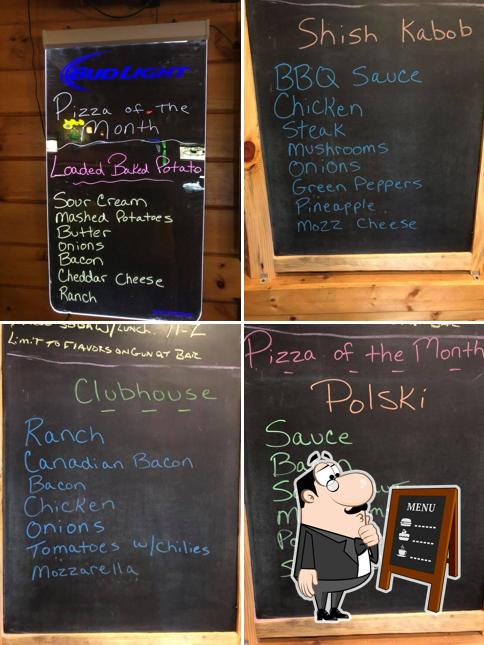 BUD LIGHT
Pizza of the
Month
Loaded Baked Potato
Sour Cream
Mashed Potatoes
Butter
Onions
Bacon
Cheddar Cheese
Ranch
Shish Kabob
BBQ Sauce
Chicken
Steak
Mushrooms
Onions
Green Peppers
Pineapple
Mozz Cheese
Limit to Flavors on Gun at Bar
Clubhouse
Ranch
Canadian Bacon
Bacon
Chicken
Onions
Tomatoes w/chilies
Mozzarella
Pizza of the Month
Polski
Sauce
MENU